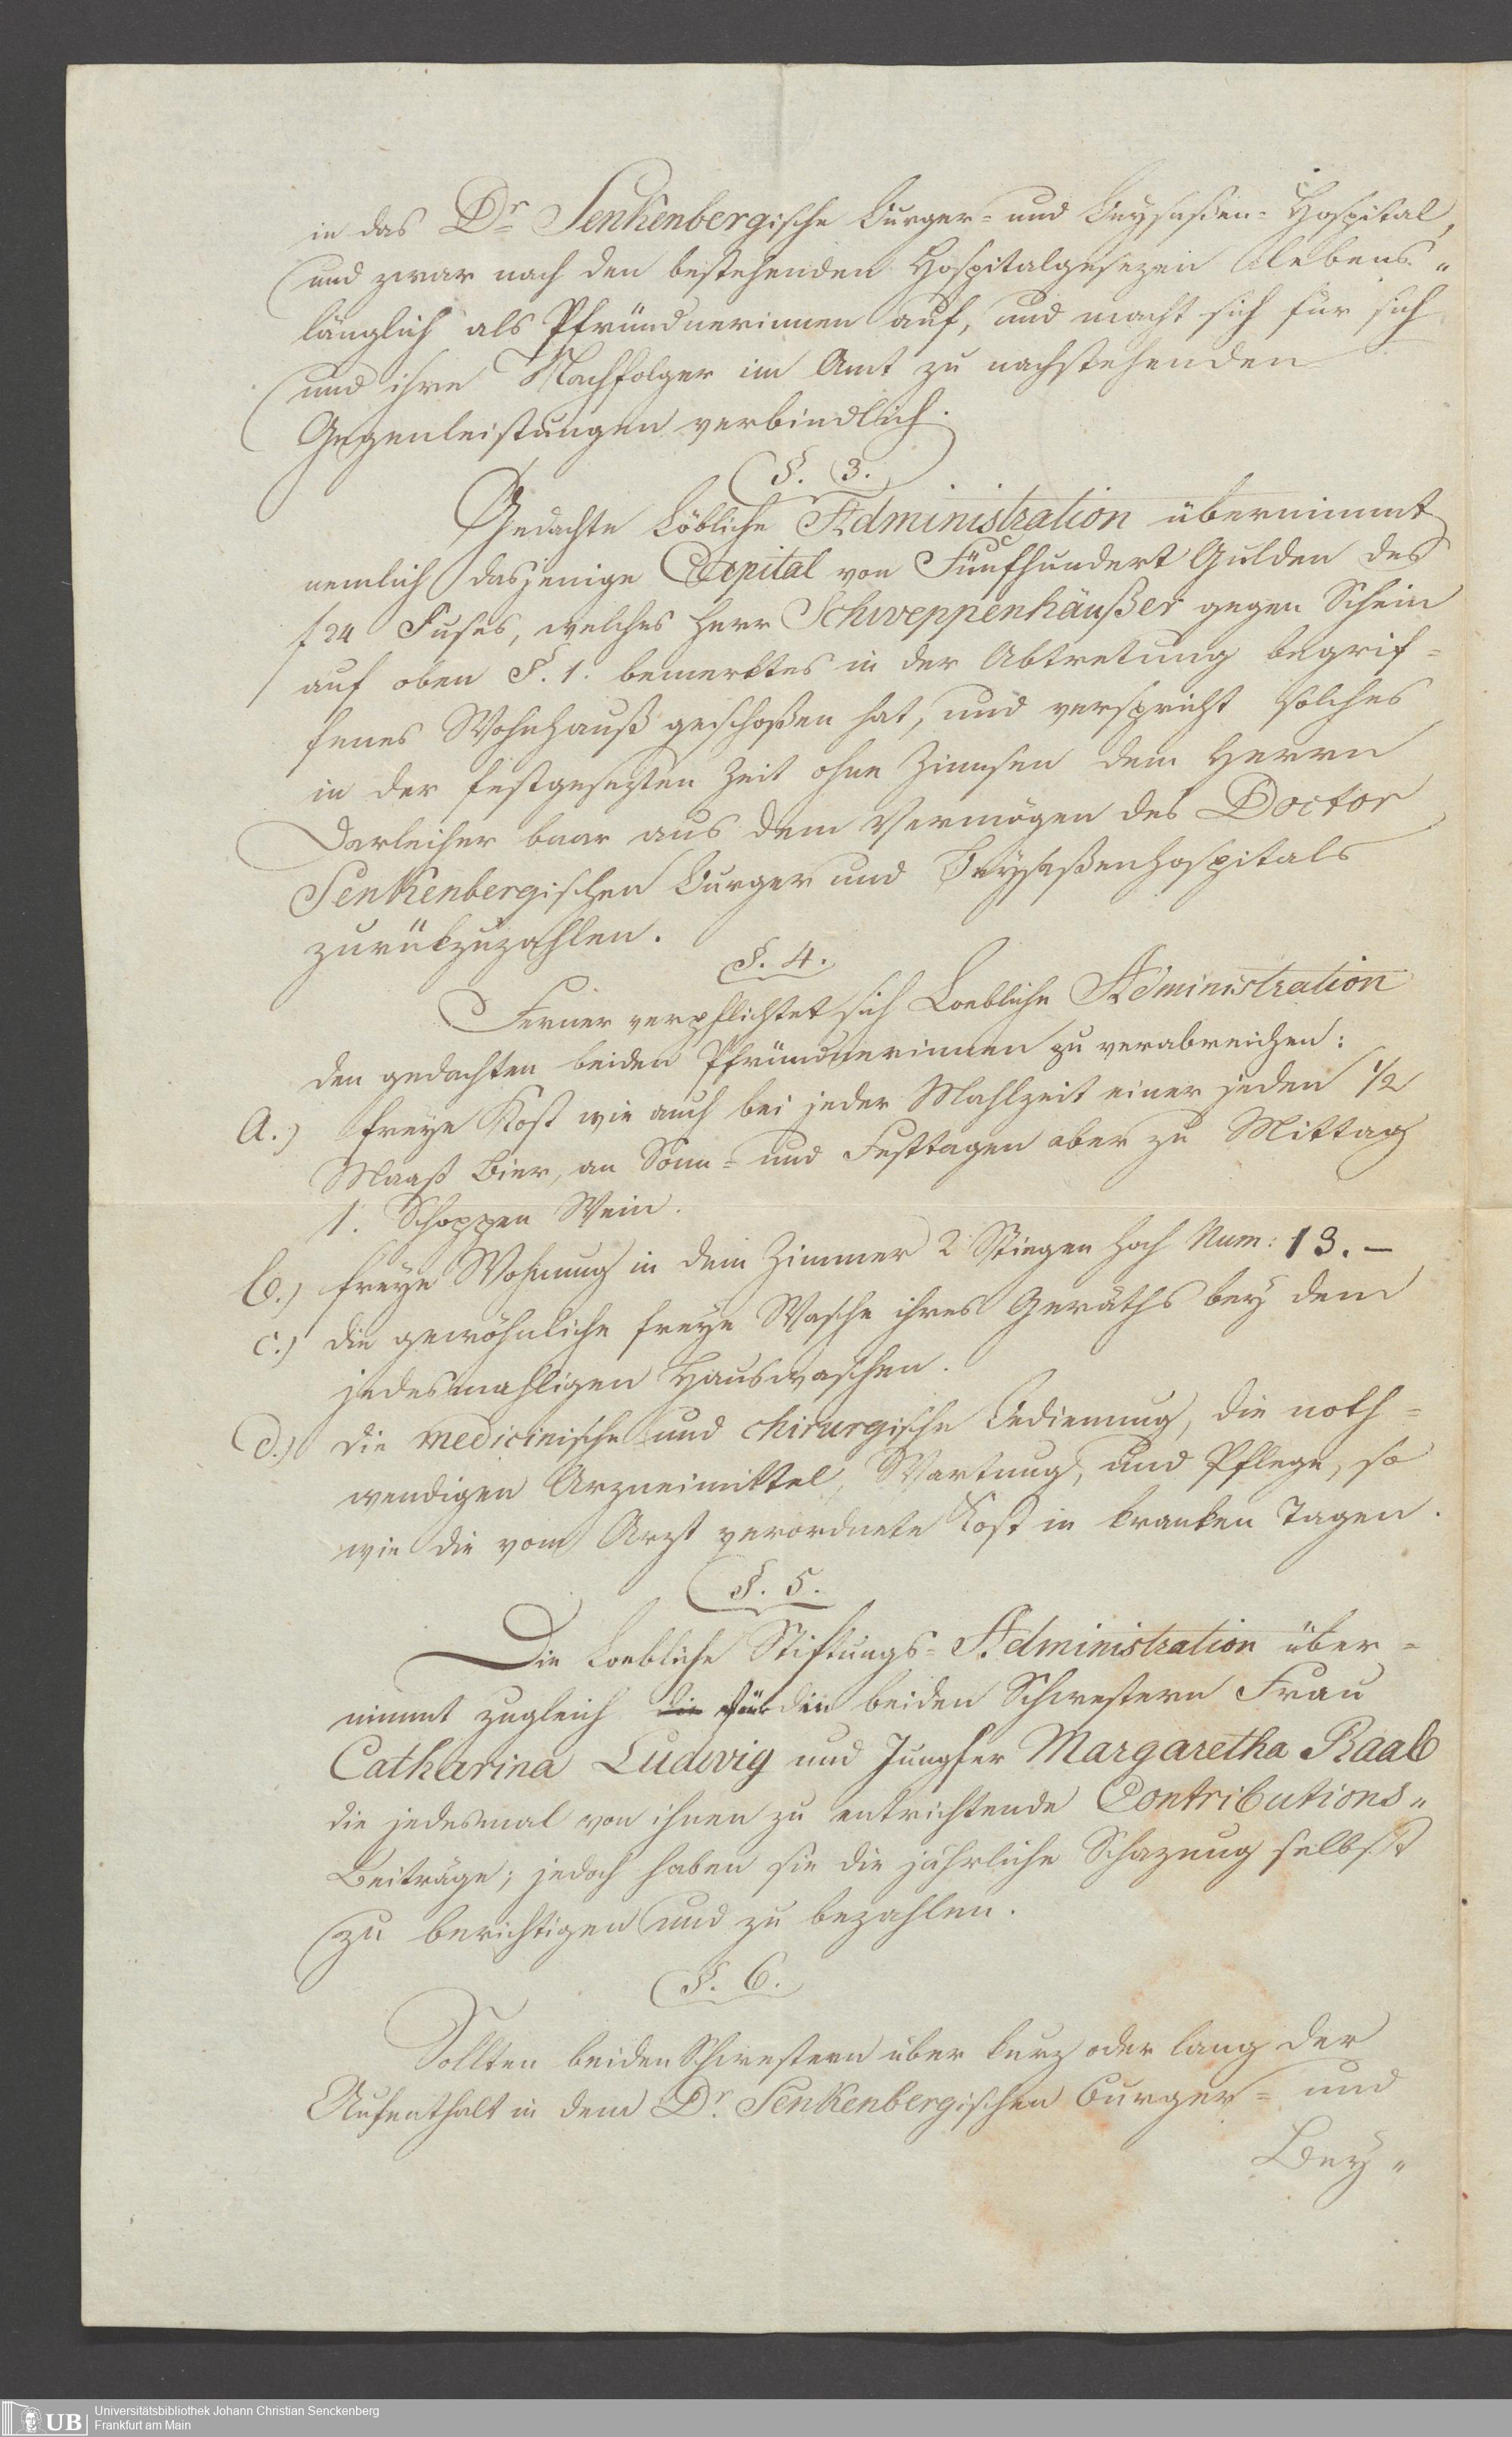 in das Dr Senkenbergische Burger- und Beysaßen-Hospital,
und zwar nach den bestehenden Hospitalgesezen lebens"
länglich als Pfründnerinnen auf, und macht sich für sich
und ihre Nachfolger im Amt zu nachstehenden
Gegenleistungen verbindlich.
§. 3.
Gedachte Löbliche Administration übernimmt
nemlich dasjenige Capital von Fünfhundert Gulden des
f 24 Fuses, welches Herr Schweppenhäußer gegen Schein
auf oben §. 1. bemerktes in der Abtretung begrif=
fenes Wohnhauß geschoßen hat, und verspricht solches
in der festgesezten Zeit ohne Zinnsen dem Herrn
Darleiher baar aus dem Vermögen des Doctor
Senkenbergischen Burger und Beysaßenhospitals
zurükzuzahlen.
§. 4.
Ferner verpflichtet sich Loebliche Administration
den gedachten beiden Pfründnerinnen zu verabreichen:
a.) freye Kost wie auch bei jeder Mahlzeit einer jeden 1/2
Maaß Bier, an Sonn= und Festtagen aber zu Mittag
1. Schoppen Wein.
b.) freye Wohnung in dem Zimmer 2 Stiegen hoch Num: 13. –
c.) die gewöhnliche freye Wasche ihres Geräths bey dem
jedesmahligen Hauswaschen.
d.) die medicinische und chirurgische Bedienung, die noth=
wendigen Arzneimittel, Wartung, und Pflege, so
wie die vom Arzt verordnete Kost in kranken Tagen.
§. 5.
Die Loebliche Stiftungs=Administration über=
nimmt zugleich die für die beiden Schwestern Frau
Catharina Ludwig und Jungfer Margaretha Raab
die jedesmal von ihnen zu entrichtende Contributions"
Beiträge; jedoch haben sie die jährliche Schazung selbst
zu berichtigen und zu bezahlen.
§. 6.
Sollten beiden Schwestern über kurz oder lang der
Aufenthalt in dem Dr. Senkenbergischen Burger= und
Bey"
UB
Universitätsbibliothek Johann Christian Senckenberg
Frankfurt am Main